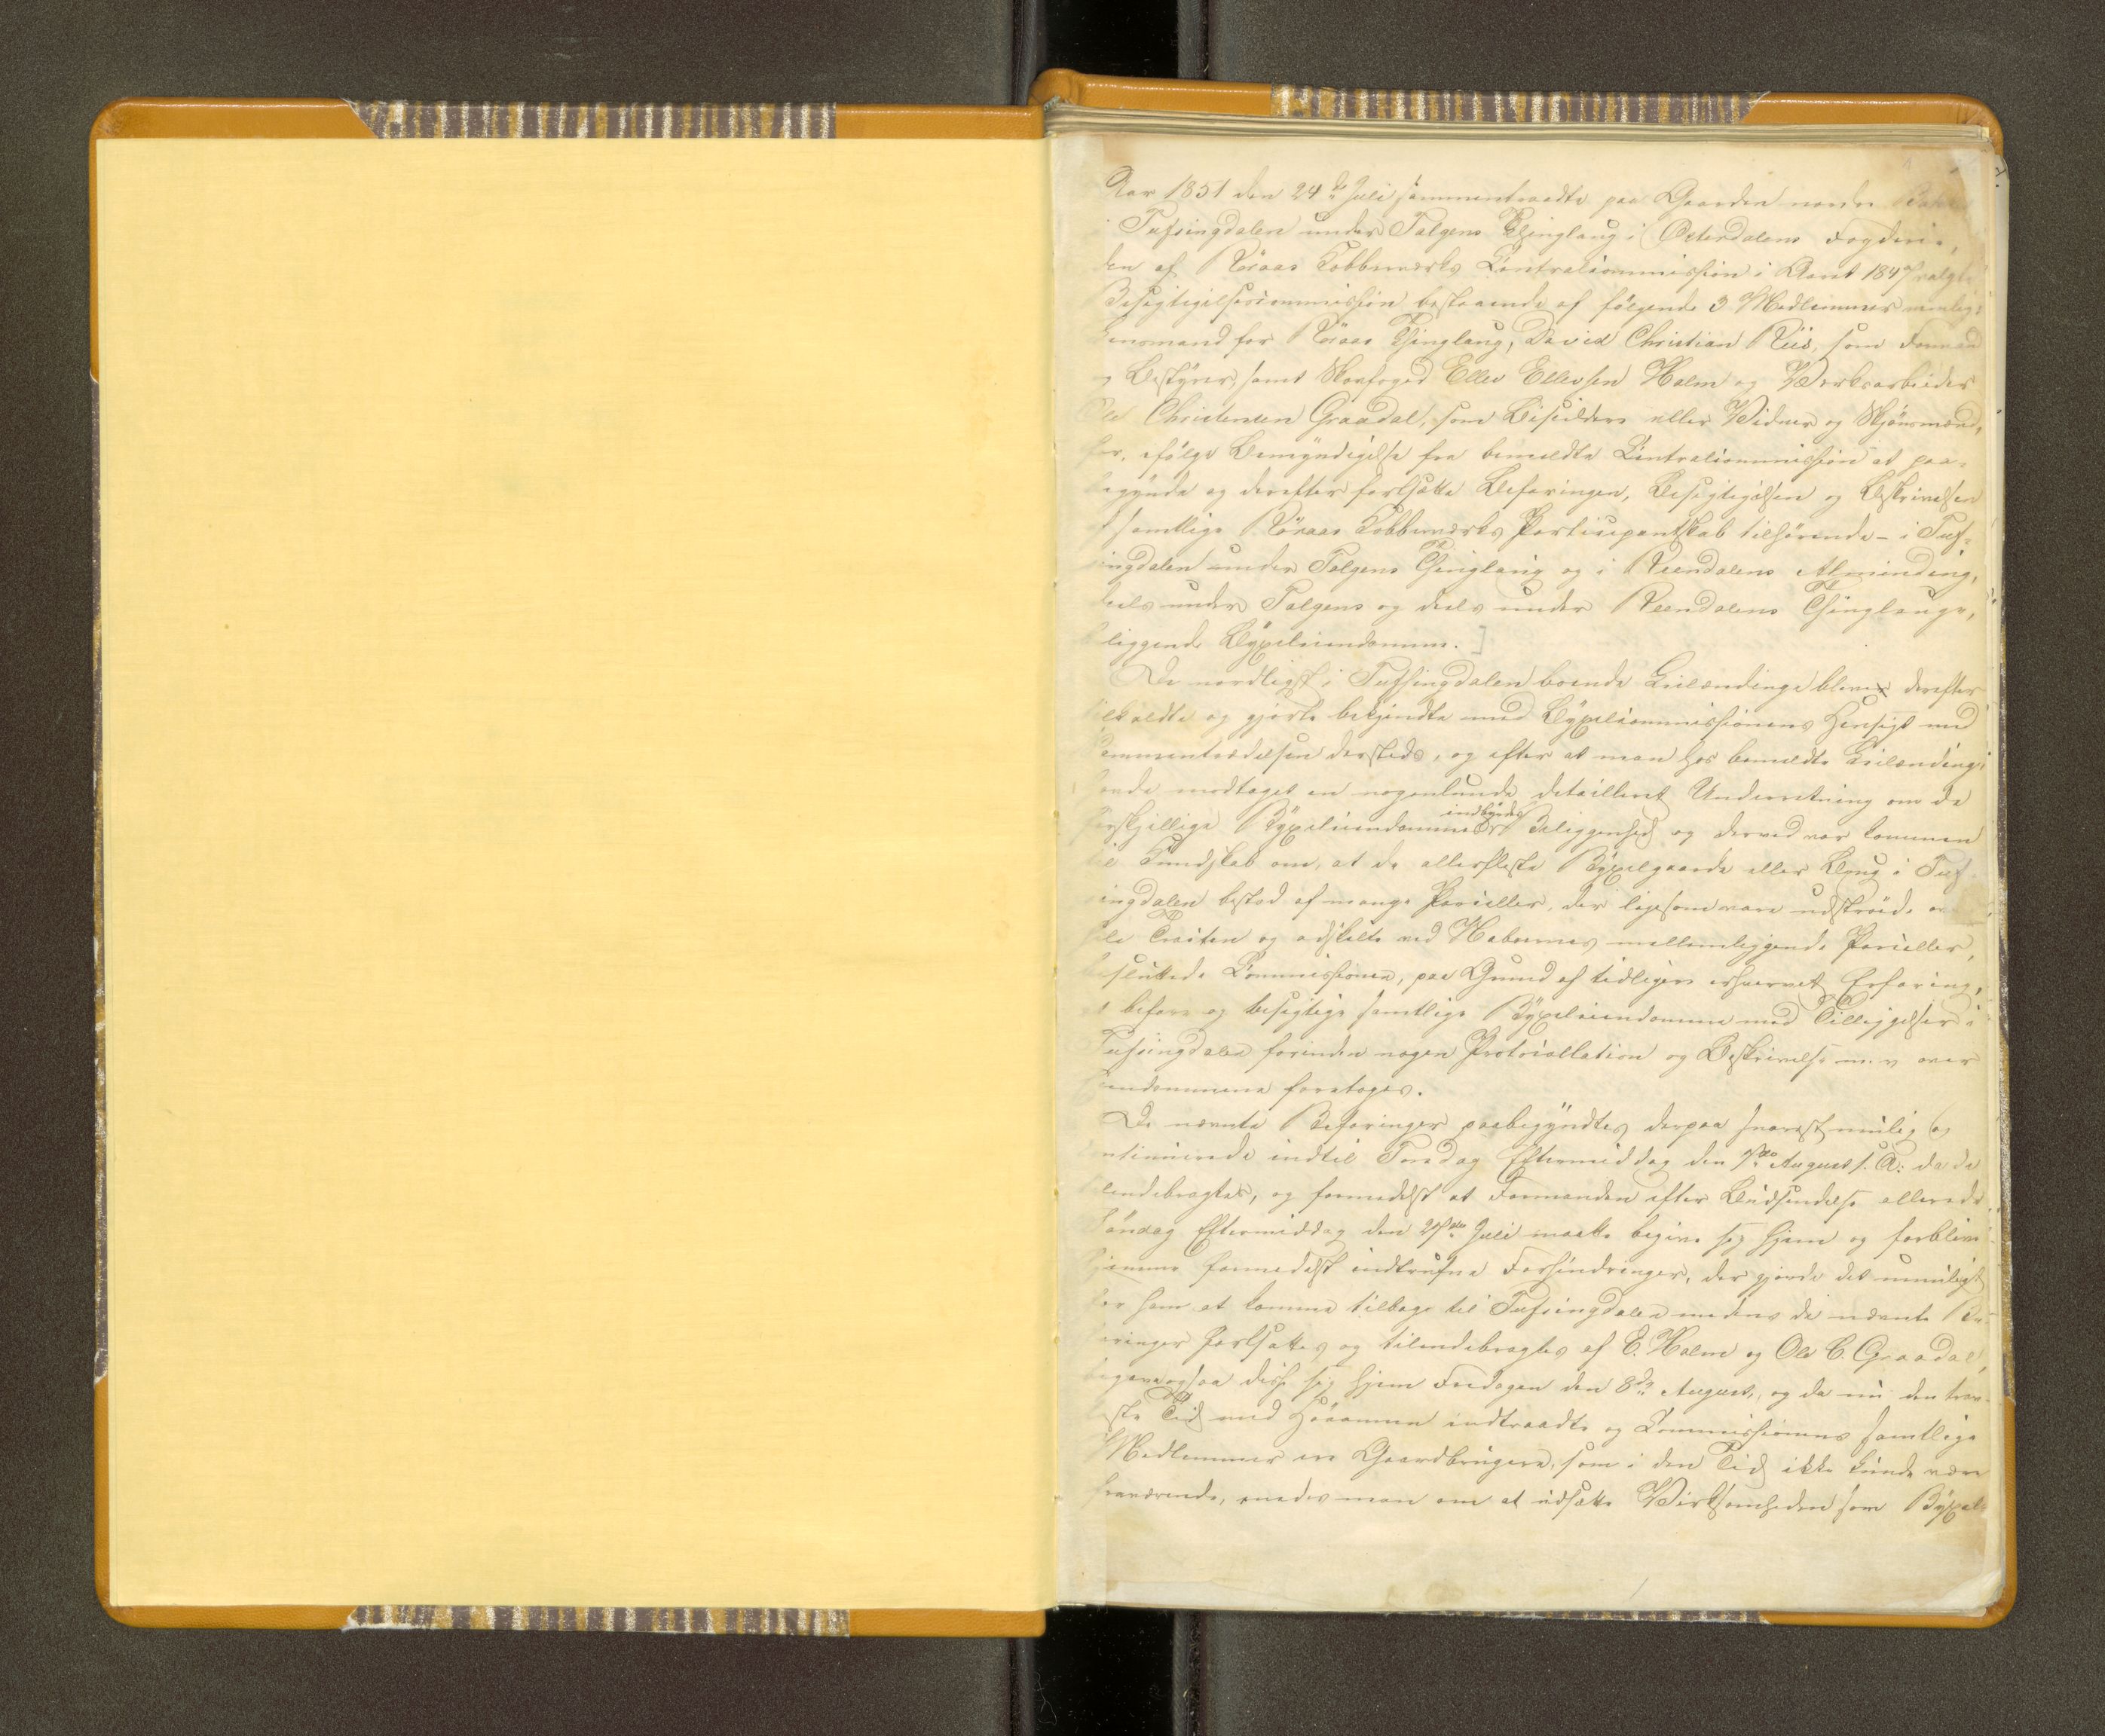 Aar 1851 den 24de Juli sammentraadte paa Gaarden nordre
i Tufsingdalen under Tolgens Thinglaug i Østerdalens Fogderie,
den af Röraas Kobberværks Centralcommission i Aaret 1847 valgte
Besigtigelsescommission bestaaende af følgende 3 Medlemmer nemlig:
Lensmand for Röraas Thinglaug, David Christian Riis, som Formand
og Bestyrer, samt Skovfoged Ellev Ellevsen Holm og Værksarbeider
Ole Christensen Graadal, som Bisidder eller Vidner og Skjönsmænd,
for, ifölge Bemyndigelse fra bemeldte Centralcommission at paa-
begynde og derefter fortsætte Befaringen, Besigtigelsen og Beskrivelsen
af samtlige Röraas Kobberværks Participantskab tilhörende - i Tuf-
singdalen under Tolgens Thinglaug og i Reendalens Alminding,
deels under Tolgens og deels under Reendalens Thinglauge,
beliggende Bÿxeleiendomme.]
De nordligst i Tufsingdalen boende Leilændinge bleve derefter
tilkaldte og gjorte bekjendte med Bÿxelcommissionens Hensigt med
Sammentrædelsen dersteds, og efter at man hos bemeldte Leilændinge
havde modtaget en nogenlunde detailleret Underretning om de
forskjellige Bÿxeleiendommes indbyrdes Beliggenhed og derved var kommen
til Kundskab om, at de allerfleste Bÿxelgaarde eller Brug i Tuf-
singdalen bestod af mange Parceller, der ligesom vare udströede
hele Tracten og adskilte ved Naboernes mellemliggende Parceller,
besluttede Commissionen, paa Grund af tidligere erhvervet Erfaring,
at befare og besigtige samtlige Bÿxeleiendomme med Tilliggelser i
Tufsingdalen forinden nogen Protocollation og Beskrivelse m. v. over
Eiendommene foretoges.
De nævnte Befaringer paabegyndtes derpaa snarest mulig og
continuerede indtil Torsdag Eftermiddag den 7de August s. A: da de
tilendebragtes, og formedelst at Formanden efter Budsendelse allerede
Söndag Eftermiddag den 27de Juli maatte begive sig hjem og forblive
hjemme formedelst indtrufne Forhindringer, der gjorde det umuligt
for ham at komme tilbage til Tufsingdalen medens de nævnte Be-
faringer fortsattes og tilendebragtes af E. Holm og Ole C. Graadal,
begave ogsaa disse sig hjem Fredagen den 8de August, og da nu den trav-
leste Tid med Höaannen indtraadte og Commissionens samtlige
Medlemmer ere Gaardbrugere, som i den Tid ikke kunde være
fraværende, enedes man om at udsætte Virksomheden som Bÿxel-